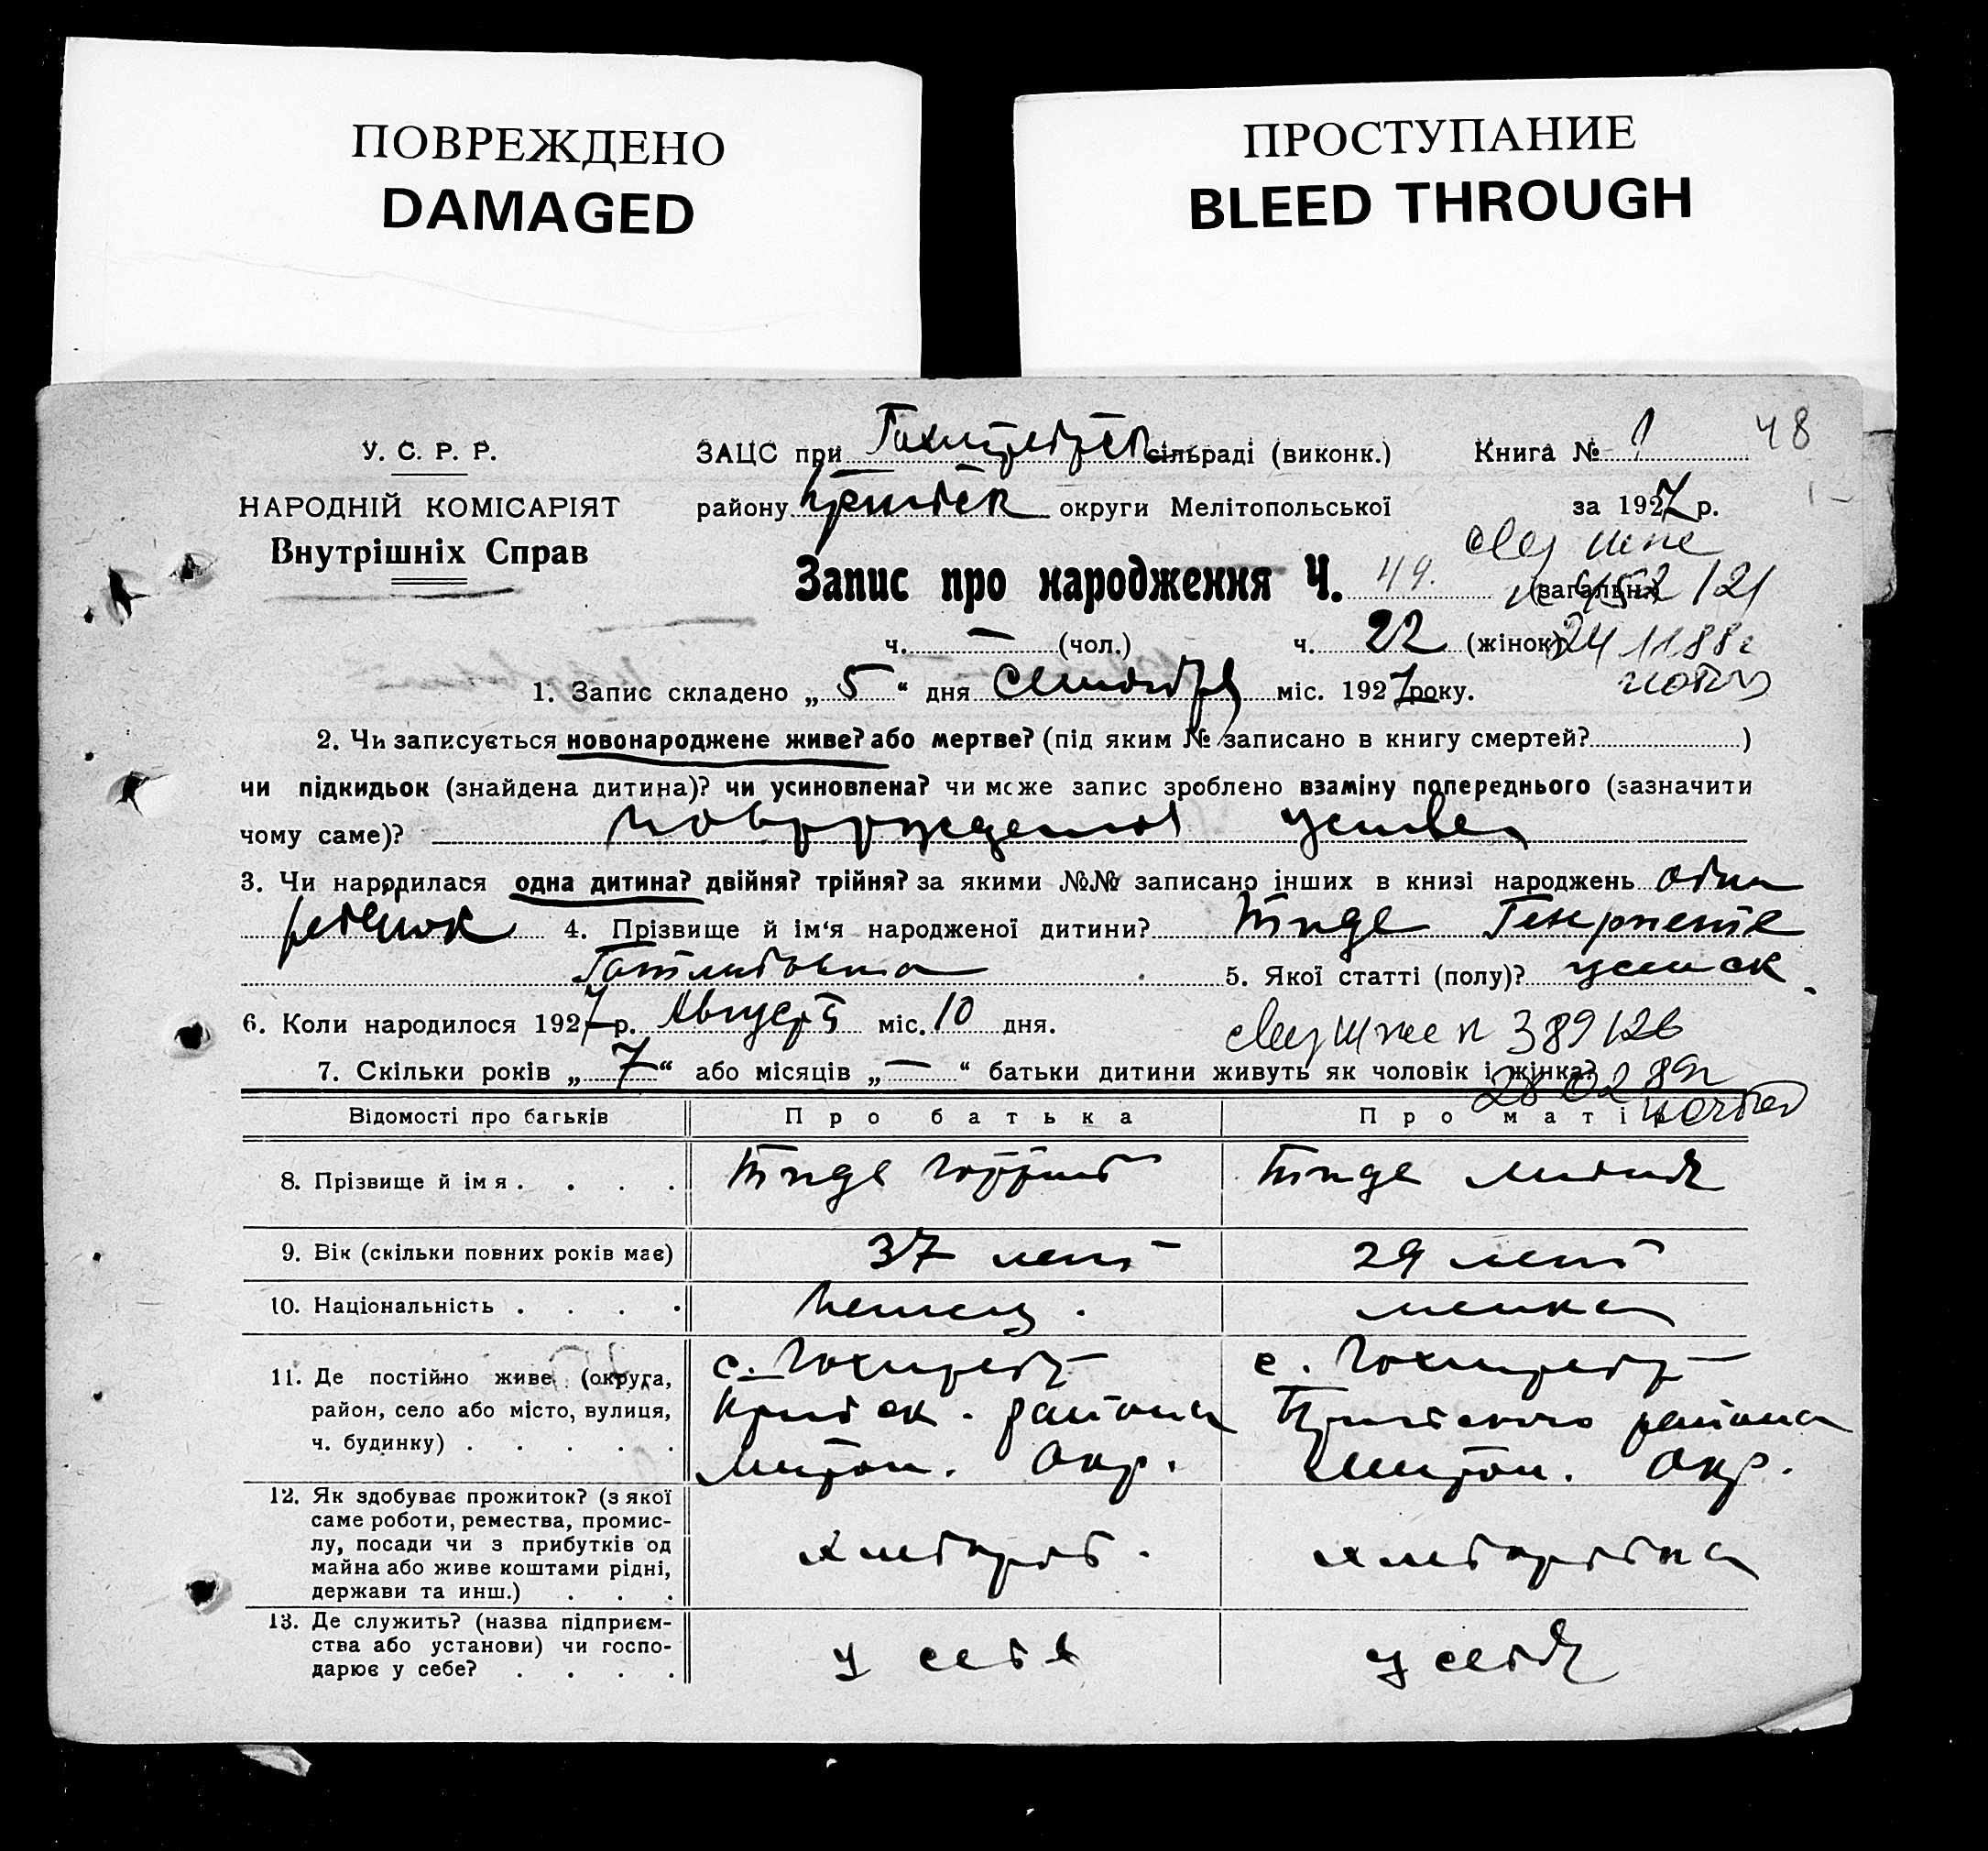 ПОВРЕЖДЕНО
DAMAGED
ПРОСТУПАНИЕ
BLEED THROUGH
48
У. С. Р. Р.
НАРОДНІЙ КОМІСАРІЯТ
Внутрішніх Справ
ЗАЦС при сільраді (виконк.) Книга № 1
району округи Мелітопольської за 1927 р.
Запис про народження Ч. 49. (загальна)
121
ч. — (чол.) ч. 22 (жінок)
24 11 88г
1. Запис складено „ 5 “ дня Сентября міс. 1927 року.
2. Чи записується новонароджене живе? або мертве? (під яким № записано в книгу смертей? )
чи підкидьок (знайдена дитина)? чи усиновлена? чи може запис зроблено взаміну попереднього (зазначити
чому саме)?
3. Чи народилася одна дитина? двійня? трійня? за якими №№ записано інших в книзі народжень один
ребенок 4. Прізвище й ім‘я народженої дитини? Тиде Генриете
Готлибовна 5. Якої статті (полу)? женск
6. Коли народилося 1927 р. Август міс. 10 дня.
389126
7. Скільки років „ 7 “ або місяців „ — “ батьки дитини живуть як чоловік і жінка?
28 02 89г
Відомості про батьків Про батька Про матір
8. Прізвище й імя . . . . Тиде Тиде
9. Вік (скільки повних років має) 37 лет 29 лет
10. Національність . . . . Немец. немка
11. Де постійно живе (округа,
район, село або місто, вулиця,
ч. будинку) . . . . .
с. Гохштедт
района
Окр.
с. Гохштедт
района
Окр.
12. Як здобуває прожиток? (з якої
саме роботи, ремества, промис-
лу, посади чи з прибутків од
майна або живе коштами рідні,
держави та инш.) . . .
хлебороб. хлеборобка
13. Де служить? (назва підприєм-
ства або установи) чи госпо-
дарює у себе? . . . .
у себя у себя